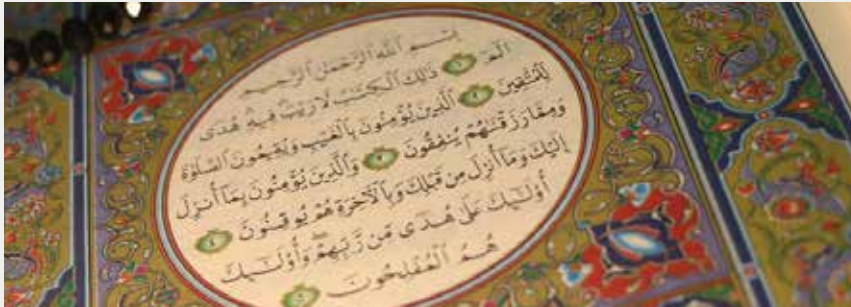 بِسْمِ اللَّهِ الرَّحْمَٰنِ الرَّحِيمِ
الٓمٓ ١ ذَٰلِكَ الْكِتَٰبُ لَا رَيْبَ فِيهِ هُدًى
لِّلْمُتَّقِينَ ٢ الَّذِينَ يُؤْمِنُونَ بِالْغَيْبِ وَيُقِيمُونَ الصَّلَوٰةَ
وَمِمَّا رَزَقْنَٰهُمْ يُنفِقُونَ ٣ وَالَّذِينَ يُؤْمِنُونَ بِمَا أُنزِلَ
إِلَيْكَ وَمَا أُنزِلَ مِن قَبْلِكَ وَبِالْآخِرَةِ هُمْ يُوقِنُونَ ٤
أُو۟لَٰٓئِكَ عَلَىٰ هُدًى مِّن رَّبِّهِمْ وَأُو۟لَٰٓئِكَ
هُمُ الْمُفْلِحُونَ ٥